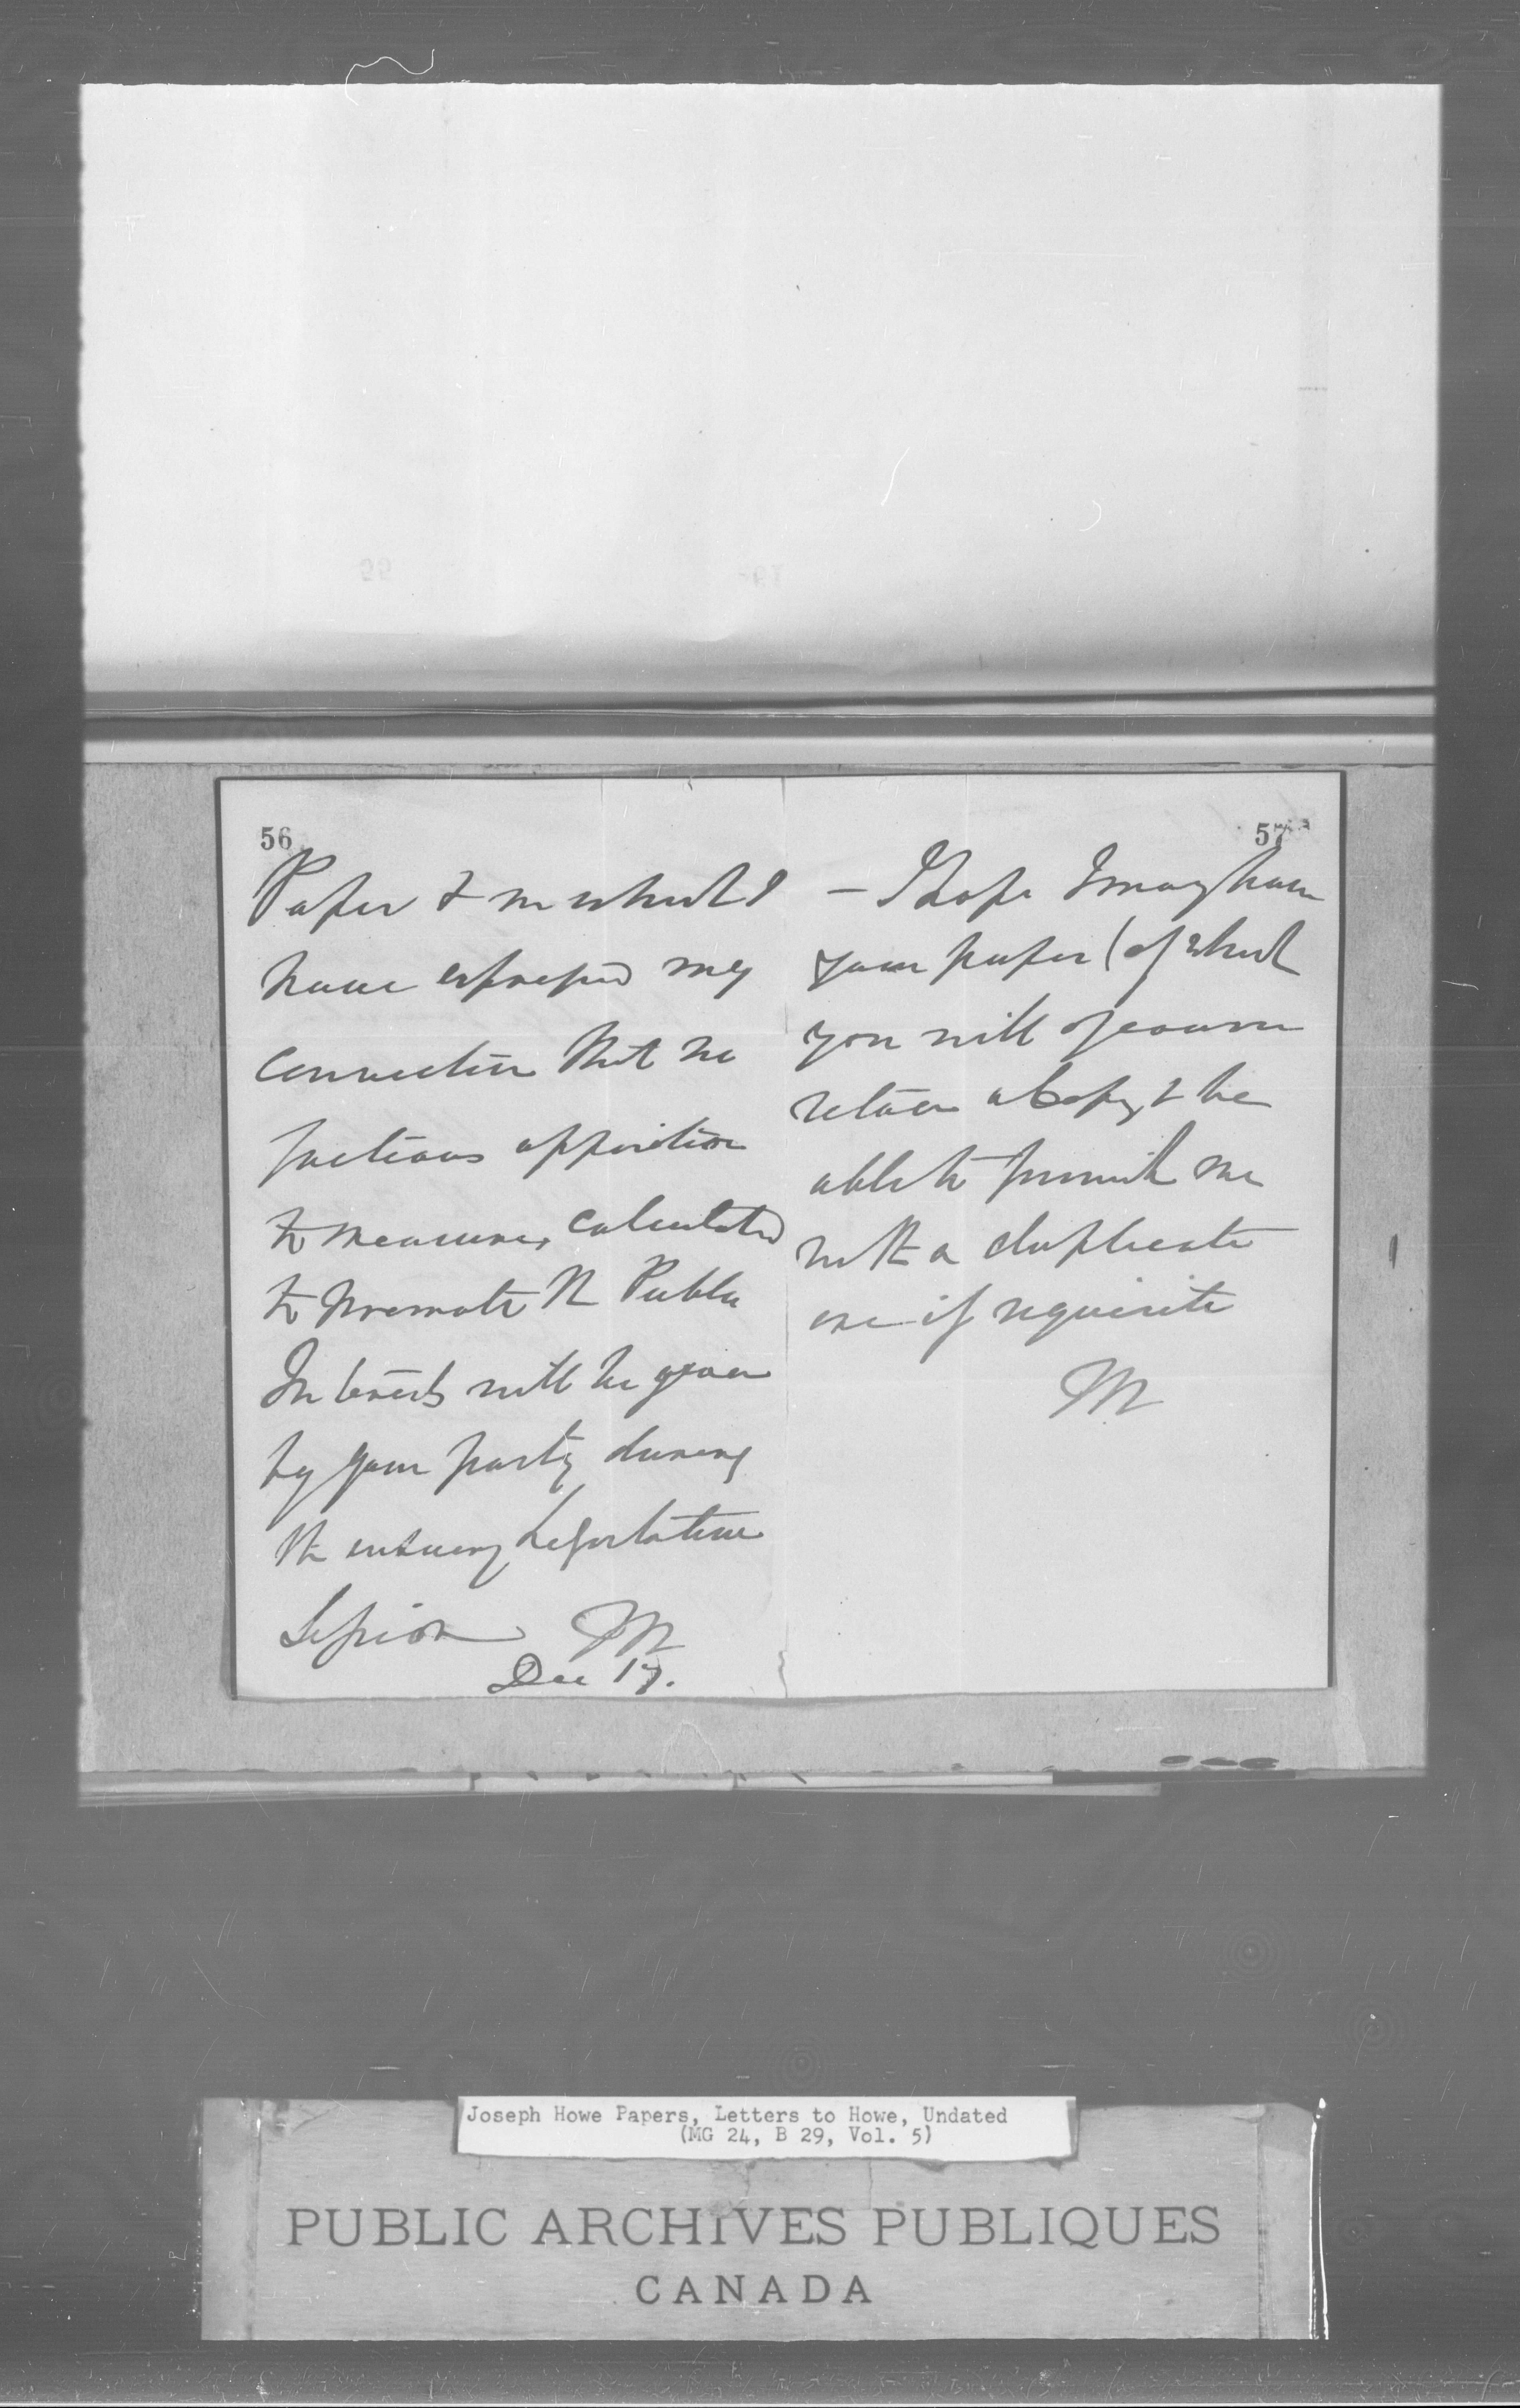 56
Paper & in which I
have expressed my
conviction that no
factious opposition
to measures calculated
to promote the Public
Interests will be given
by your party during
the ensuing Legislative
Session M
Dec 17.
57
— I hope I may have
your paper (of which
you will of course
retain a Copy, & be
able to furnish me
with a duplicate
one if requisite
M
Joseph Howe Papers, Letters to Howe, Undated
(MG 24, B 29, Vol. 5)
PUBLIC ARCHIVES PUBLIQUES
CANADA